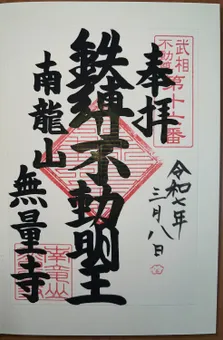 奉拝
武相
不動尊
第十一番
令和七年
三月八日
鉄縛不動明王
南龍山
無量寺